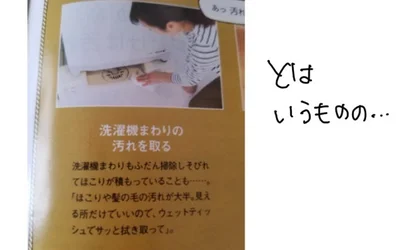 あっ 汚れ
洗濯機まわりの
汚れを取る
洗濯機まわりもふだん掃除しそびれ
てほこりが積もっていることも……。
「ほこりや髪の毛の汚れが大半。見え
る所だけでいいので、ウェットティッ
シュでサッと拭き取って」。
とは
いうものの…